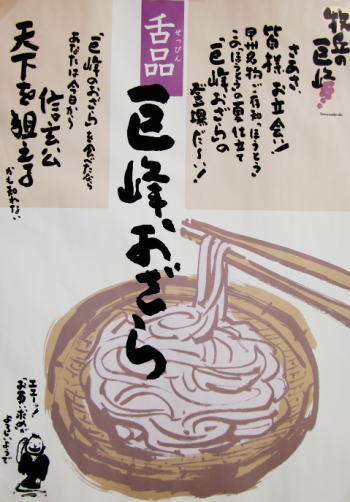 牧丘の
巨峰
さあさ、
皆様お立会い!
甲州名物ご存知「ほうとう」
この「ほうとう」の夏仕立て
「巨峰おざら」の
登場だーい!
舌品
ぜっぴん
巨峰おざら
「巨峰のおざら」を食べたなら
あなたは今日から
信玄公
天下を狙える
かも知れない
エエーッ!
お買い求めが
よろしいようで